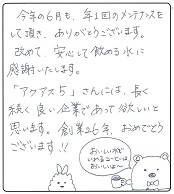 今年の6月も、年1回のメンテナンスを
して頂き、ありがとうございます。
改めて、安心して飲める水に
感謝いたします。
「アクアス5」さんには、長く
続く良い企業であって欲しいと
思います。創業26年、おめでとう
ございます!!
おいしい水で
いれるコーヒーは
おいしいよ〜